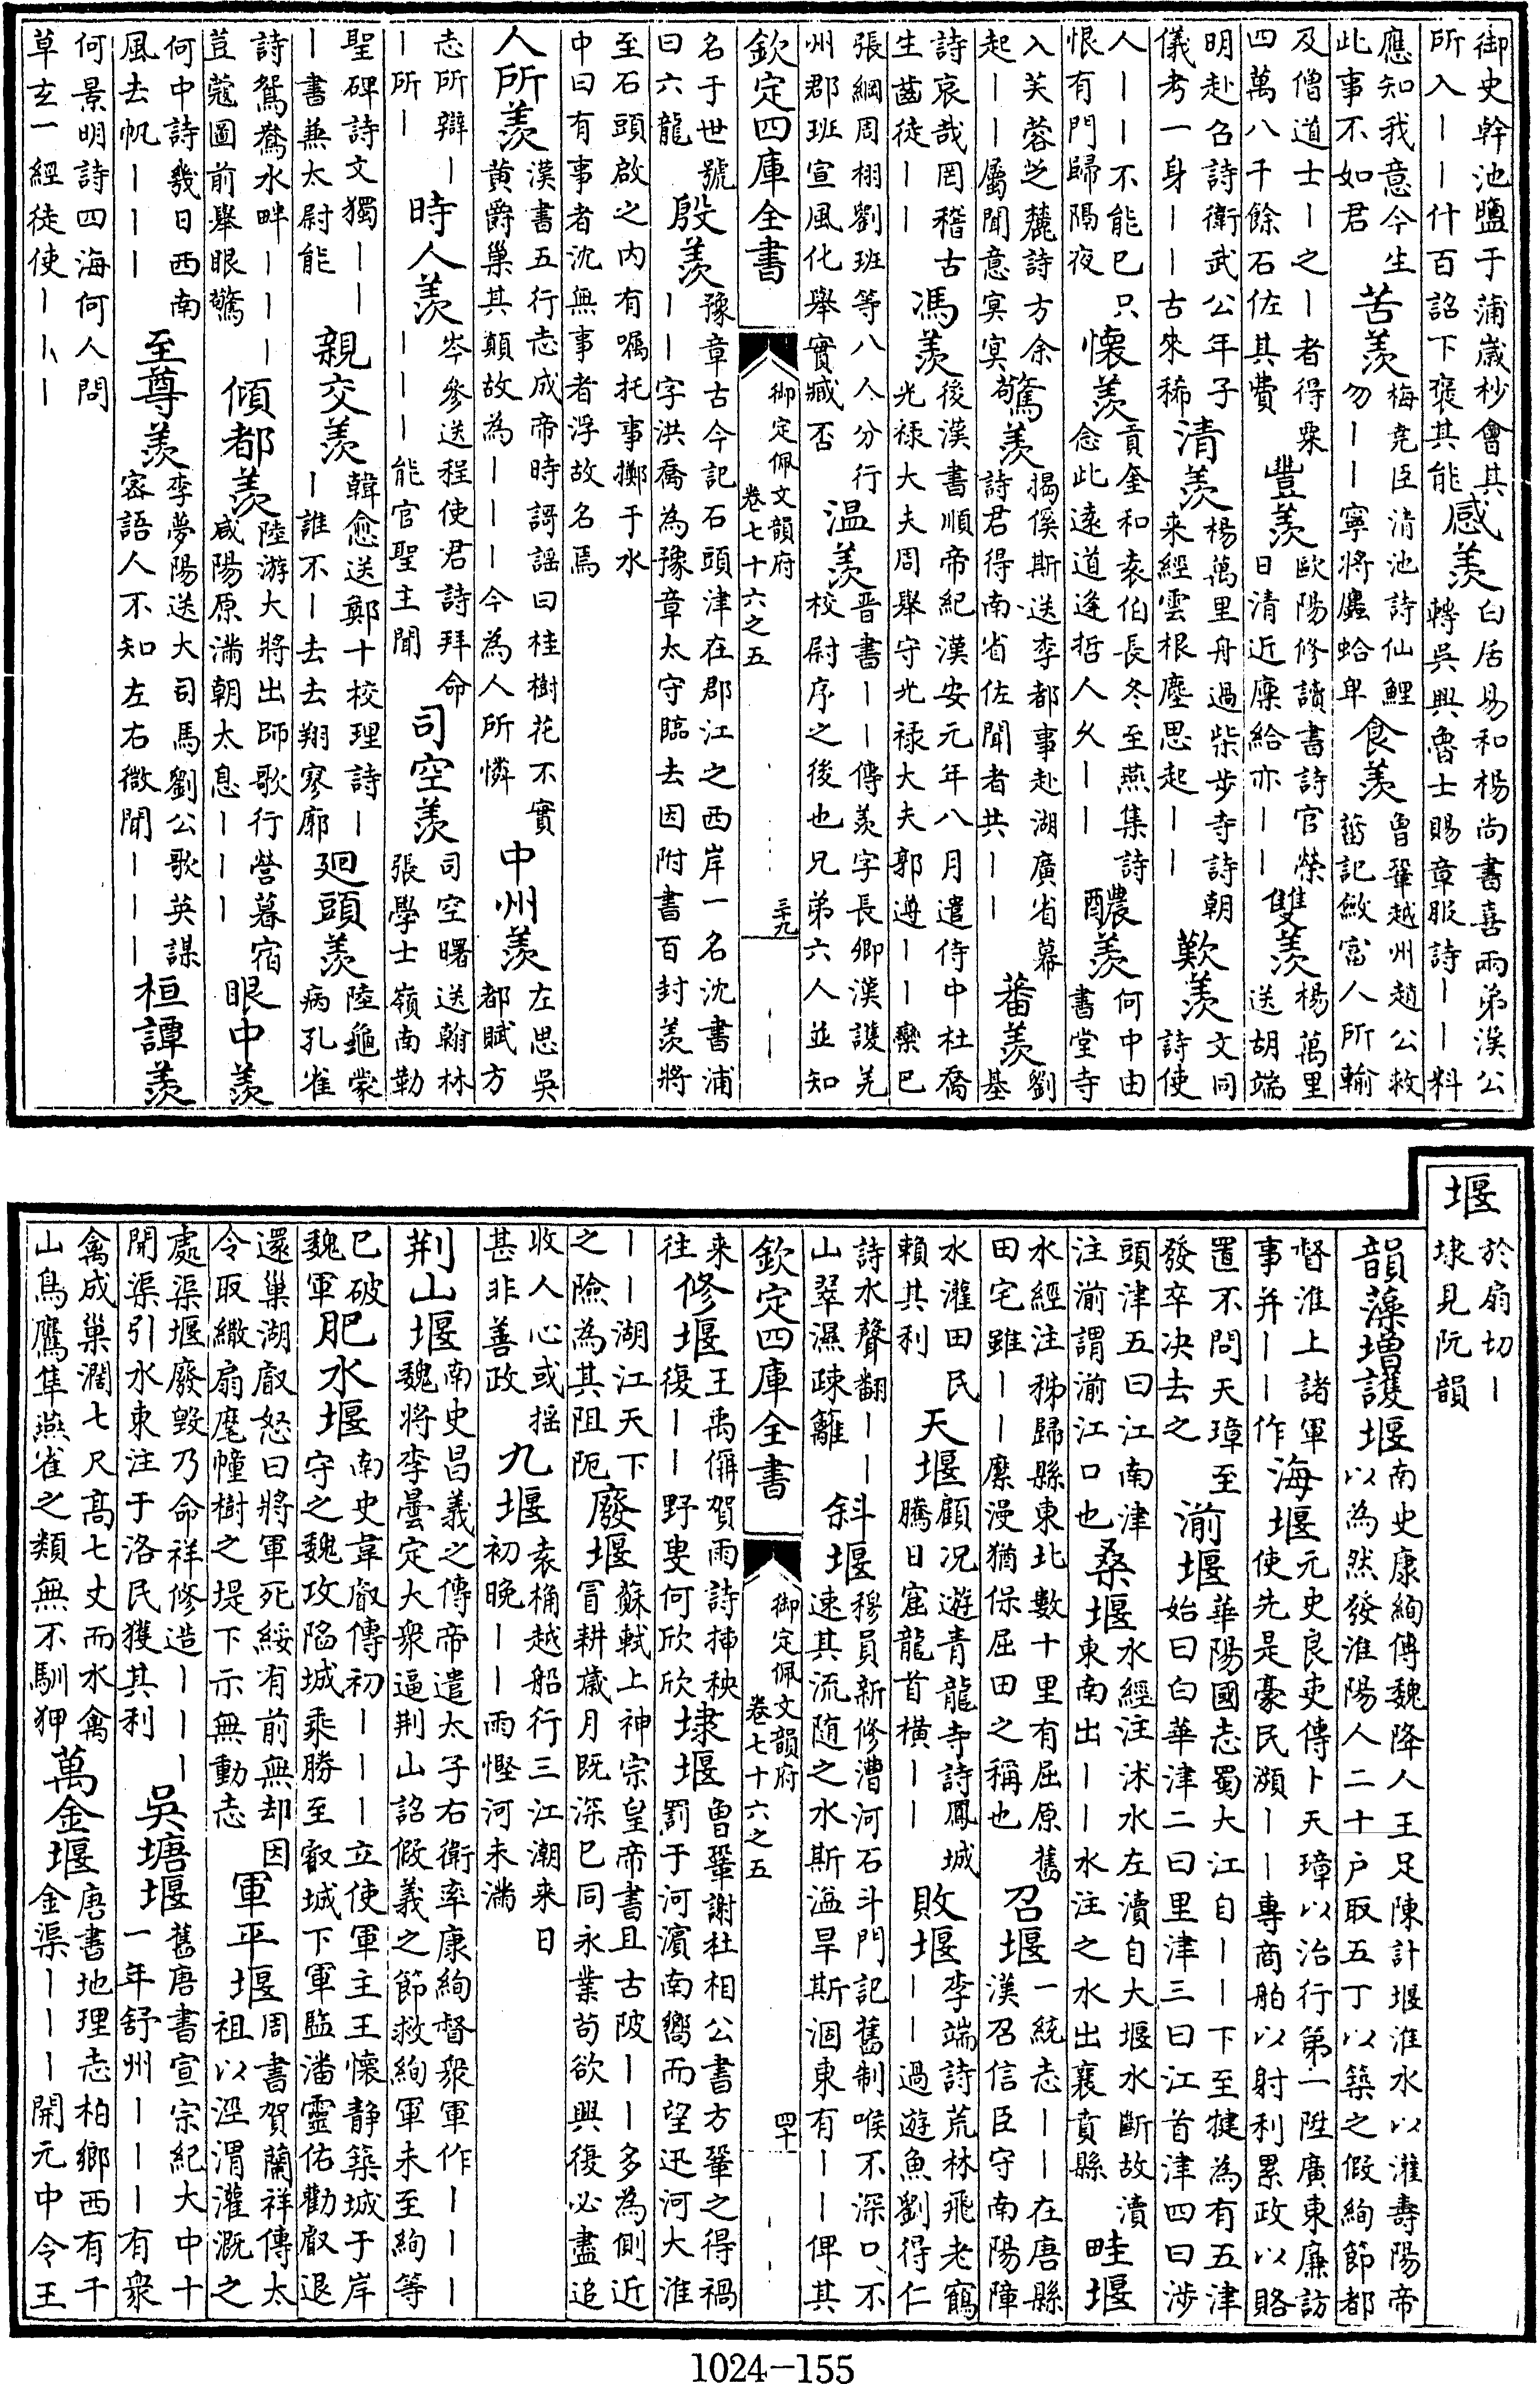 御史幹池鹽于蒲歲杪會其所入｜｜什百詔下褒其能感羨白居易和楊尚書喜兩弟漢公轉吳興魯士賜章服詩｜｜料
應知我意今生此事不如君苦羨梅堯臣清池詩仙鯉勿｜｜寧將廛蛤卑食羨曾鞏越州趙公救菑記斂富人所輸
及僧道士｜之｜者得粟四萬八千餘石佐其費豐羨歐陽修讀書詩官榮日清近廩給亦｜｜雙羨楊萬里送胡端
明赴召詩衛武公年子儀考一身｜｜古來稀清羨楊萬里舟過柴步寺詩朝来經雲根塵思起｜｜歎羨文同詩使
人｜｜不能已只恨有門歸隔夜懷羨貢奎和袁伯長冬至燕集詩念此遠道逢哲人久｜｜醲羨何中由書堂寺
入芙蓉芝麓詩方余起｜｜屬聞意冥冥驚羨揭傒斯送李都事赴湖廣省幕詩君得南省佐聞者共｜｜蕃羨劉基
詩哀哉罔稽古生齒徒｜｜馮羨後漢書順帝紀漢安元年八月遣侍中杜喬光禄大夫周舉守光禄大夫郭遵｜｜欒巴
張綱周栩劉班等八人分行州郡班宣風化舉實臧否温羨晋書｜｜傳羨字長卿漢護羌校尉序之後也兄弟六人並知
欽定四庫全書 御定佩文韻府卷七十六之五 三十九
名于世號曰六龍殷羨豫章古今記石頭津在郡江之西岸一名沈書浦｜｜字洪喬為豫章太守臨去因附書百封羨將
至石頭啟之内有囑托事擲于水中曰有事者沈無事者浮故名焉
人所羨漢書五行志成帝時謌謡曰桂樹花不實黄爵巢其顛故為｜｜｜今為人所憐中州羨左思吳都賦方
志所辯｜｜所｜時人羨岑參送程使君詩拜命｜｜｜能官聖主聞司空羨司空曙送翰林張學士嶺南勒
聖碑詩文獨｜｜｜書兼太尉能親交羨韓愈送鄭十校理詩｜｜誰不｜去去翔寥廓廻頭羨陸龜蒙病孔雀
詩鴛鴦水畔｜｜｜荳蔻圖前舉眼驚傾都羨陸游大將出師歌行營暮宿咸陽原滿朝太息｜｜｜眼中羨
何中詩幾日西南風去帆｜｜｜至尊羨李夢陽送大司馬劉公歌英謀密語人不知左右微聞｜｜｜桓譚羨
何景明詩四海何人問草玄一經徒使｜｜｜
堰於扇切｜埭見阮韻
韻藻增護堰南史康絢傳魏降人王足陳計堰淮水以灌壽陽帝以為然發淮陽人二十户取五丁以築之假絢節都
督淮上諸軍事并｜｜作海堰元史良吏傳卜天璋以治行第一陞廣東廉訪使先是豪民瀕｜｜專商舶以射利累政以賂
置不問天璋至發卒決去之湔堰華陽國志蜀大江自｜｜下至犍為有五津始曰白華津二曰里津三曰江首津四曰涉
頭津五曰江南津注湔謂湔江口也桑堰水經注沭水左瀆自大堰水斷故瀆東南出｜｜水注之水出襄賁縣畦堰
水經注秭歸縣東北數十里有屈原舊田宅雖｜｜縻漫猶保屈田之稱也召堰一統志｜｜在唐縣漢召信臣守南陽障
水灌田民賴其利天堰顧况遊青龍寺詩鳳城騰日窟龍首橫｜｜敗堰李端詩荒林飛老鶴｜｜過遊魚劉得仁
詩水聲翻｜｜山翠濕疎籬斜堰穆員新修漕河石斗門記舊制喉不深口不速其流随之水斯溢旱斯涸東有｜｜俾其
欽定四庫全書 御定佩文韻府卷七十六之五 四十
来往修堰王禹偁賀雨詩挿秧復｜｜野叟何欣欣埭堰曾鞏謝杜相公書方鞏之得禍罰于河濱南嚮而望迅河大淮
｜｜湖江天下之險為其阻阨廢堰蘇軾上神宗皇帝書且古陂｜｜多為側近冒耕歲月既深已同永業苟欲興復必盡追
收人心或摇甚非善政九堰袁桷越船行三江潮来日初晚｜｜雨慳河未滿
荆山堰南史昌義之傳帝遣太子右衛率康絢督衆軍作｜｜｜魏將李曇定大衆逼荆山詔假義之節救絢軍未至絢等
巳破魏軍肥水堰南史韋叡傳初｜｜｜立使軍主王懷静築城于岸守之魏攻陷城乘勝至叡城下軍監潘靈佑勸叡退
還巢湖叡怒曰將軍死綏有前無却因令取繖扇麾幢樹之堤下示無動志軍平堰周書賀蘭祥傳太祖以涇渭灌溉之
處渠堰廢毀乃命祥修造｜｜｜開渠引水東注于洛民獲其利吳塘堰舊唐書宣宗紀大中十一年舒州｜｜｜有衆
禽成巢濶七尺高七丈而水禽山鳥鷹隼燕雀之類無不馴狎萬金堰唐書地理志柏鄉西有千金渠｜｜｜開元中令王
1024-155